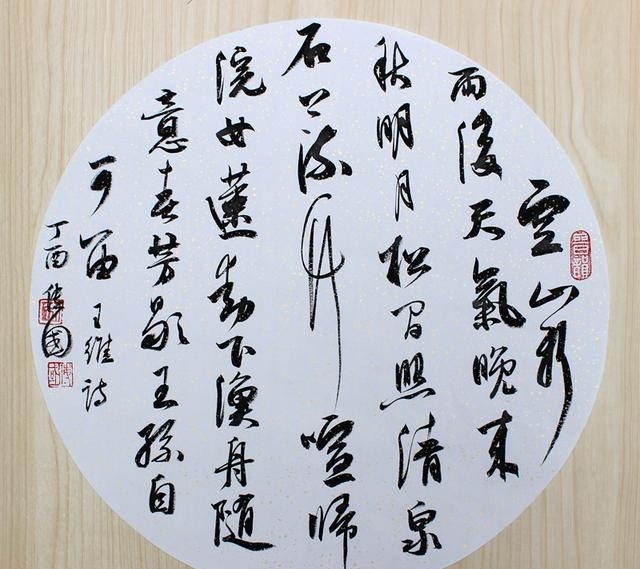 空山新
雨後天氣晚来
秋明月松间照清泉
石上流竹喧歸
浣女蓮動下漁舟隨
意春芳歇王孫自
可留 王維詩
丁酉 勝國